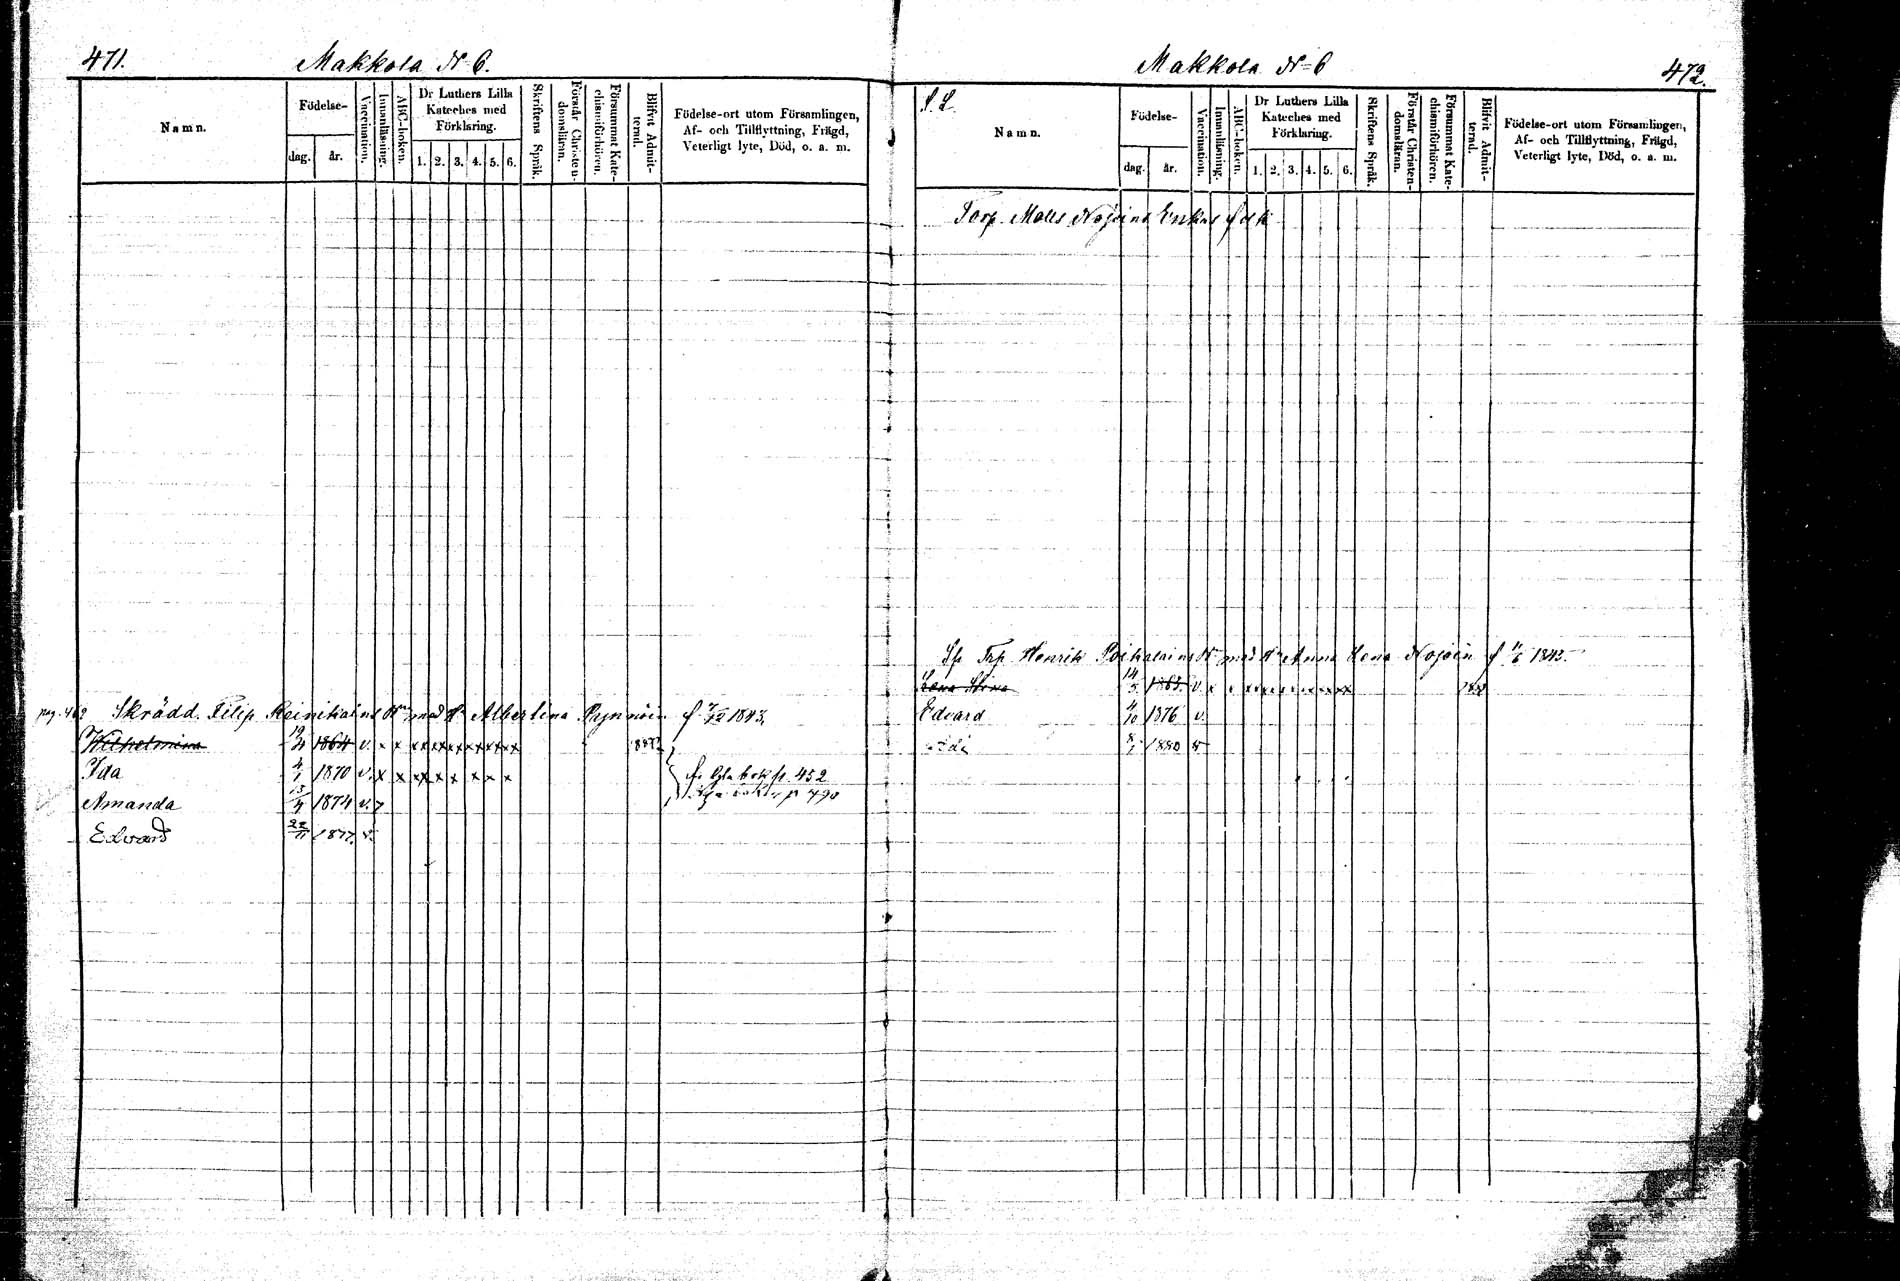 471.
Makkola N 6.
Namn.
Födelse-
dag.
år.
Vaccination.
Innanläsning.
ABC-boken.
Dr Luthers Lilla
Kateches med
Förklaring.
1. 2. 3. 4. 5. 6.
Skriftens Språk.
Förstår Christen-
domsläran.
Försummat Kate-
chismiförhören.
Blifvit Admit-
terad.
Födelse-ort utom Församlingen,
Af- och Tillflyttning, Frägd,
Veterligt lyte, Död, o. a. m.
pag. 462 Skrädd. Filip Reinikains med Albertina Pynnöin f 7/12 1843.
Wilhelmina 19/4 1864 v. x x x x x x x x x x x x
Ida 4/1 1870 v. x x x x x x x x x
bok p. 452
Amanda 15/4 1874 v.
p 490
Edvard 22/11 1877. v.
Makkola N=6
472.
S. L.
Namn.
Födelse-
dag.
år.
Vaccination.
Innanläsning.
ABC-boken.
Dr Luthers Lilla
Kateches med
Förklaring.
1. 2. 3. 4. 5. 6.
Skriftens Språk.
Förstår Christen-
domsläran.
Försummat Kate-
chismiförhören.
Blifvit Admit-
terad.
Födelse-ort utom Församlingen,
Af- och Tillflyttning, Frägd,
Veterligt lyte, Död, o. a. m.
Torp. Matts Nojoins Enkas folk
Trp. Henrik Poikolains med Anna Lena Nojoin f 1/6 1843.
Lena Stina 14/5 1863. v. x x x x x x x x x x x
Edvard 4/10 1876 v.
8/1 1880 v